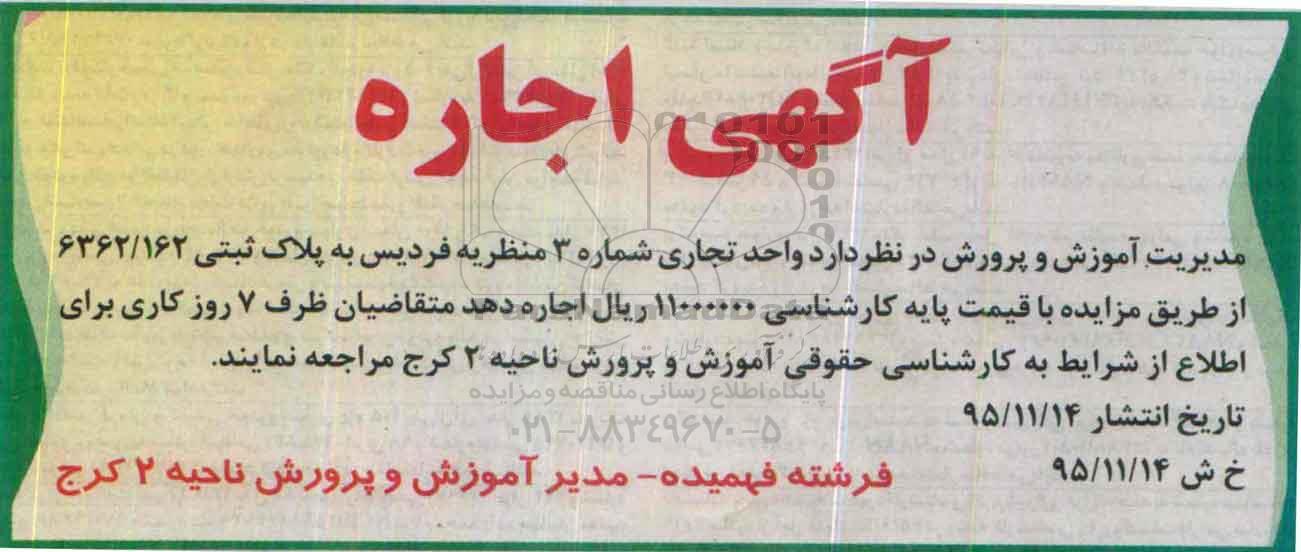 آگهی اجاره
مدیریت آموزش و پرورش در نظر دارد واحد تجاری شماره ۳ منظریه فردیس به پلاک ثبتی ۶۳۶۲/۱۶۲
از طریق مزایده با قیمت پایه کارشناسی ۱۱۰۰۰۰۰۰ ریال اجاره دهد متقاضیان ظرف ۷ روز کاری برای
اطلاع از شرایط به کارشناسی حقوقی آموزش و پرورش ناحیه ۲ کرج مراجعه نمایند.
پایگاه اطلاع رسانی مناقصه و مزایده
تاریخ انتشار ۹۵/۱۱/۱۴
۰۲۱-۸۸۳۴۹۶۷۰-۵
خ ش ۹۵/۱۱/۱۴
فرشته فهمیده- مدیر آموزش و پرورش ناحیه ۲ کرج